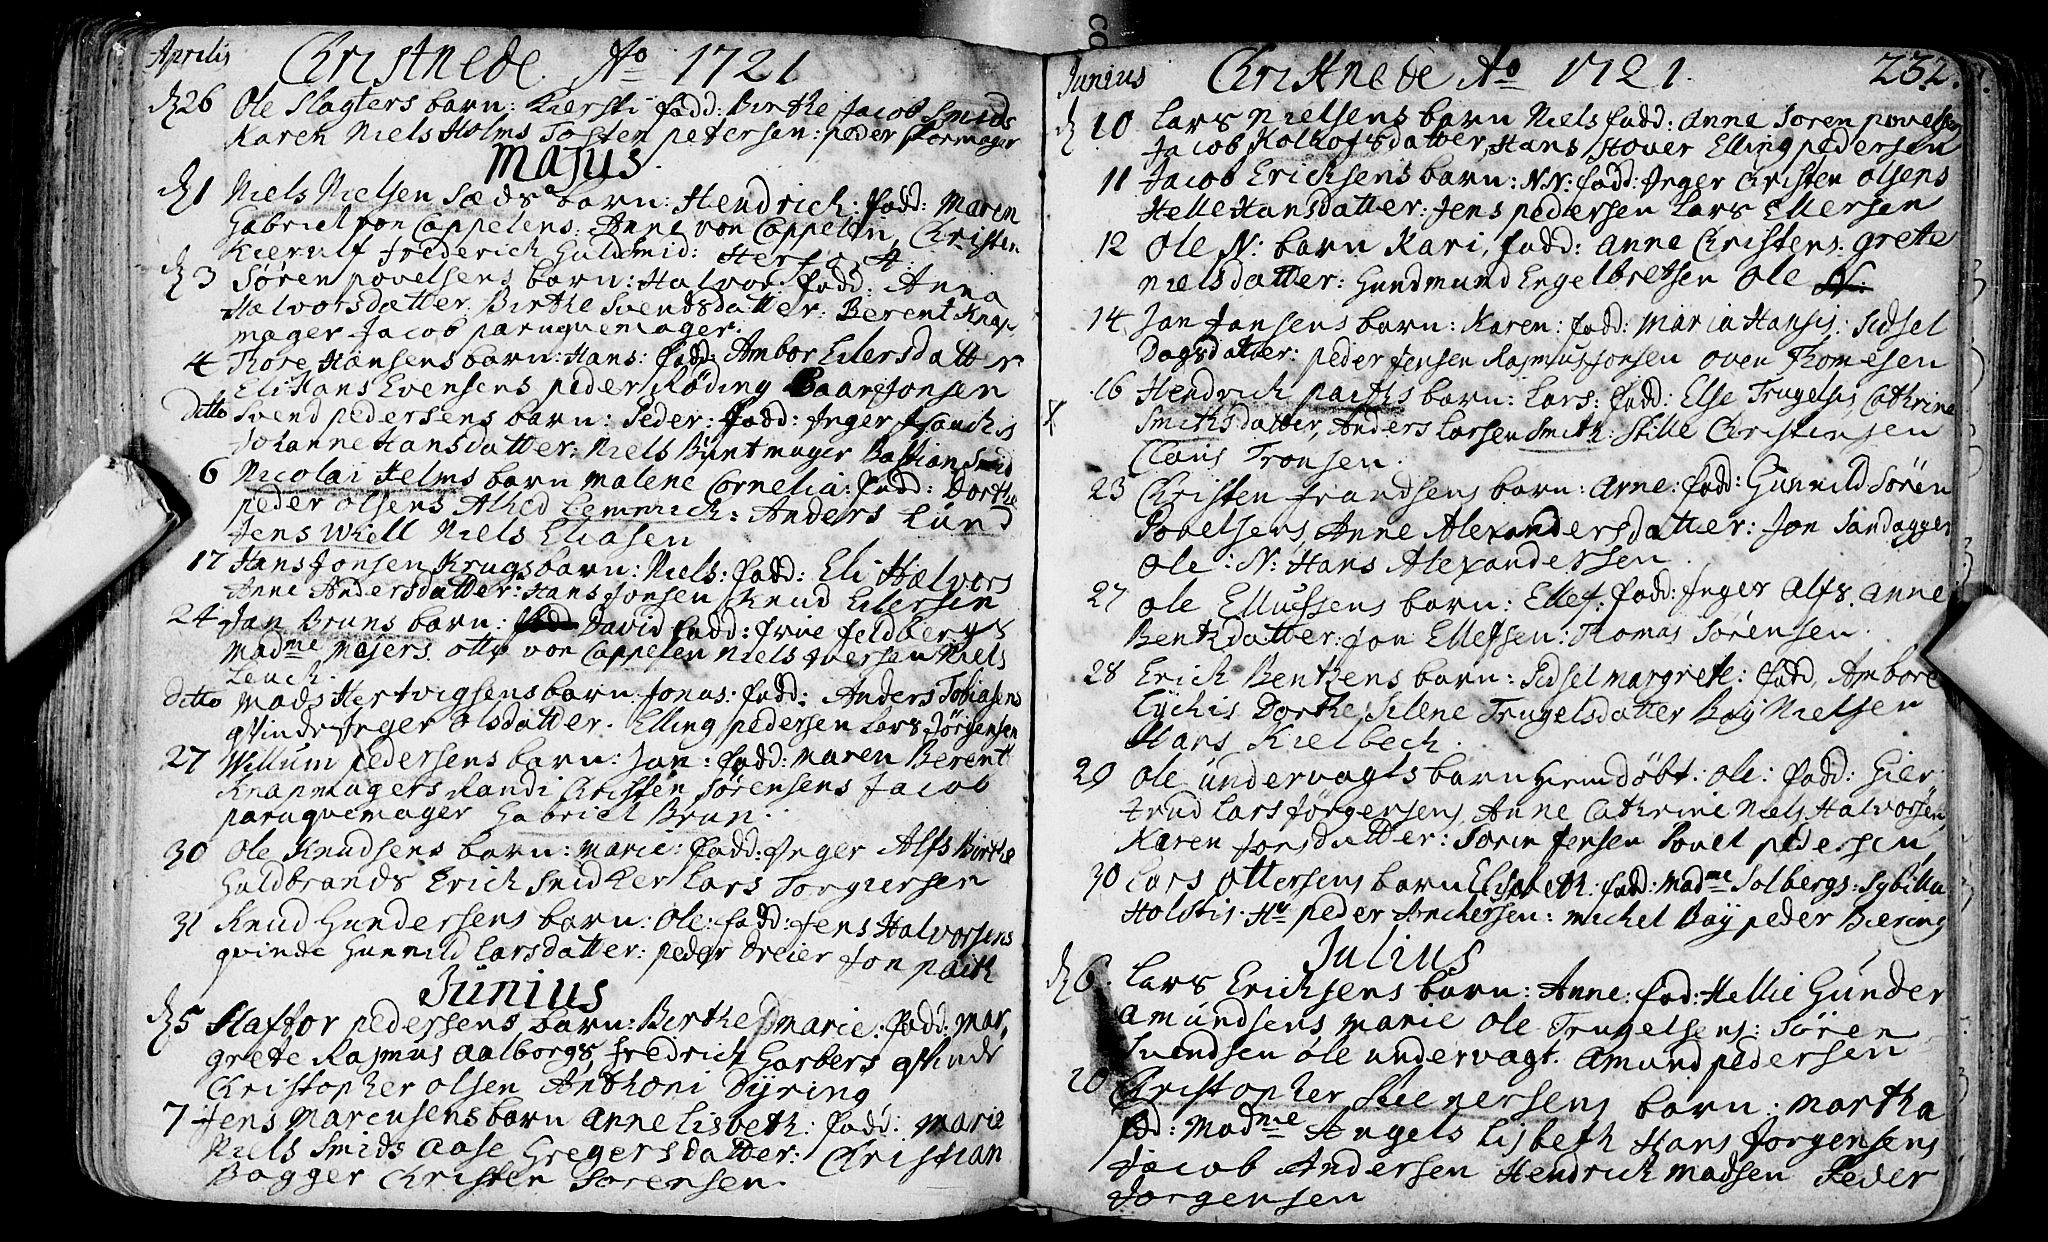 Aprilis Christnede Ao 1721
d 26 Ole Slagters barn: Kiersti fadd: Birthe Jacob Smids
Karen Niels Holms Tosten Petersen: peder Pormager
Majus
d 1 Niels Nielsen Sæds barn: Hendrich: fadd: Maren
Gabriel von Cappelens: Anne von Cappelen, Christen
Kierulf Frederich Guldsmid:
d 3 Søren povelsens barn: Halvor: fadd: Anna
Halvorsdatter Birthe Svendsdatter: Berent Knap
mager Jacob paruqvemager:
4 Tore Hansens barn: Hans: fadd: Ambor Eilersdatter
Eli Hans Evensens peder Røding Baar Jonsen
ditto Svend pedersens barn: Peder: fadd: Inger Franchis
Johanne Hansdatter: Niels Buntmager Bastian Smid
6 Nicolai Helms barn Malene Cornelia: fadd: Dorthe
peder olsens Alhed Lemmich: Anders Lund
Jens Wiell Niels Eliasen
17 Hans Jonsen Krugs barn: Niels: fadd: Eli Halvors
Anne Andersdatter: Hans Jonsen Knud Eilersen
24 Jan Bruns barn: David fadd: Frue Feldbergs
Madme Majers. otto von Cappelen Niels Iversen Niels
Leuch.
ditto Mads Hertvigsens barn: Jonas: fadd: Anders Tobiasens
qvinde Inger olsdatter. Elling pedersen Lars Jörgensen
27 Willum pedersens barn: Jan: fadd: Maren Berent
Knapmagers Randi Christen Sørensens Jacob
paruqvemager Gabriel Brun.
30 Ole Knudsens barn: Marie: fadd: Inger Alfs Birthe
Guldbrands Erich Snidker Lars Torgiersen
31 Knud Gundersens barn: Ole: fadd: Jens Halvorsens
qvinde Gunnild Larsdatter: peder Dreier Jon paith
Junius
d 5 Staffor pedersens barn: Berthe Marie: fadd: Mar,
grete Rasmus Aalborgs, Fredrich Garbers qvinde
Christopher olsen Anthoni Dyring
7 Jens Marcusens barn Anne Lisbeth: fadd: Marie
Niels Smids Aase Gregersdatter: Christian
Bagger Christen Sørensen.
Junius Christnede Ao 1721. 232.
d 10 Lars Nielsens barn Niels fadd: Anne Søren povelsen
Jacob Kolhofs datter, Hans Hover Elling pedersen
11 Jacob Ericksens barn: NN: fadd: Inger Christen olsens
Helle Hansdatter: Jens pedersen Lars Ellersen
12 Ole N: barn Kari, fadd: Anne Christens: Grete
Nielsdatter: Gundmund Engelbretsen Ole N:
14 Jan Jansens barn: Karen: fadd: Maria Hansis: Sidsel
Dagsdatter: peder Jensen Rasmus Jonsen oven Thomesen
16 Hendrich paiths barn: Lars: fadd: Else Trugelsis Cathrine
Smithsdatter, Anders Larsen Smith: Stille Christensen
Claus Tronsen.
23 Christen Frandsens barn: Arne: fadd: Gunnild Sören
Povelsens, Anne Alexandersdatter: Jon Sandagger
Ole: N: Hans Alexandersen.
27 Ole Ellufsens barn: Ellef: fadd: Inger Alfs. Anne
Bentsdatter: Jon Ellefsen: Thomas Sørensen.
28 Erich Bentsens barn: Sidsel Margrete: fadd, Ambore
Lychis Dorthe, Silene Trugelsdatter Boy Nielsen
Hans Kielbech.
29 Ole undervagts barn hiemdøbt. ole: fadd: Gier
trud Lars Jørgensens, Anne Cathrine Niels Halvorsens,
Karen Jonsdatter: Søren Jensen Povel pedersen
30 Lars Ottersens barn Elisabeth. fadd: Madme Solbergs: Sybilla
Holstis. Hr peder Anchersen: Michel Boy peder Biering
Julius
d 6. Lars Ericksens barn: Anne: fad: Hellie Gunder
Amundsens Marie Ole Trugelsens: Søren
Svendsen ole undervagt. Amund pedersen
20 Christopher Skienersens barn: Martha
fad: Madme Angels Lisbeth Hans Jorgensens
Jacob Andersen Hendrich Madsen Peder
Jorgensen